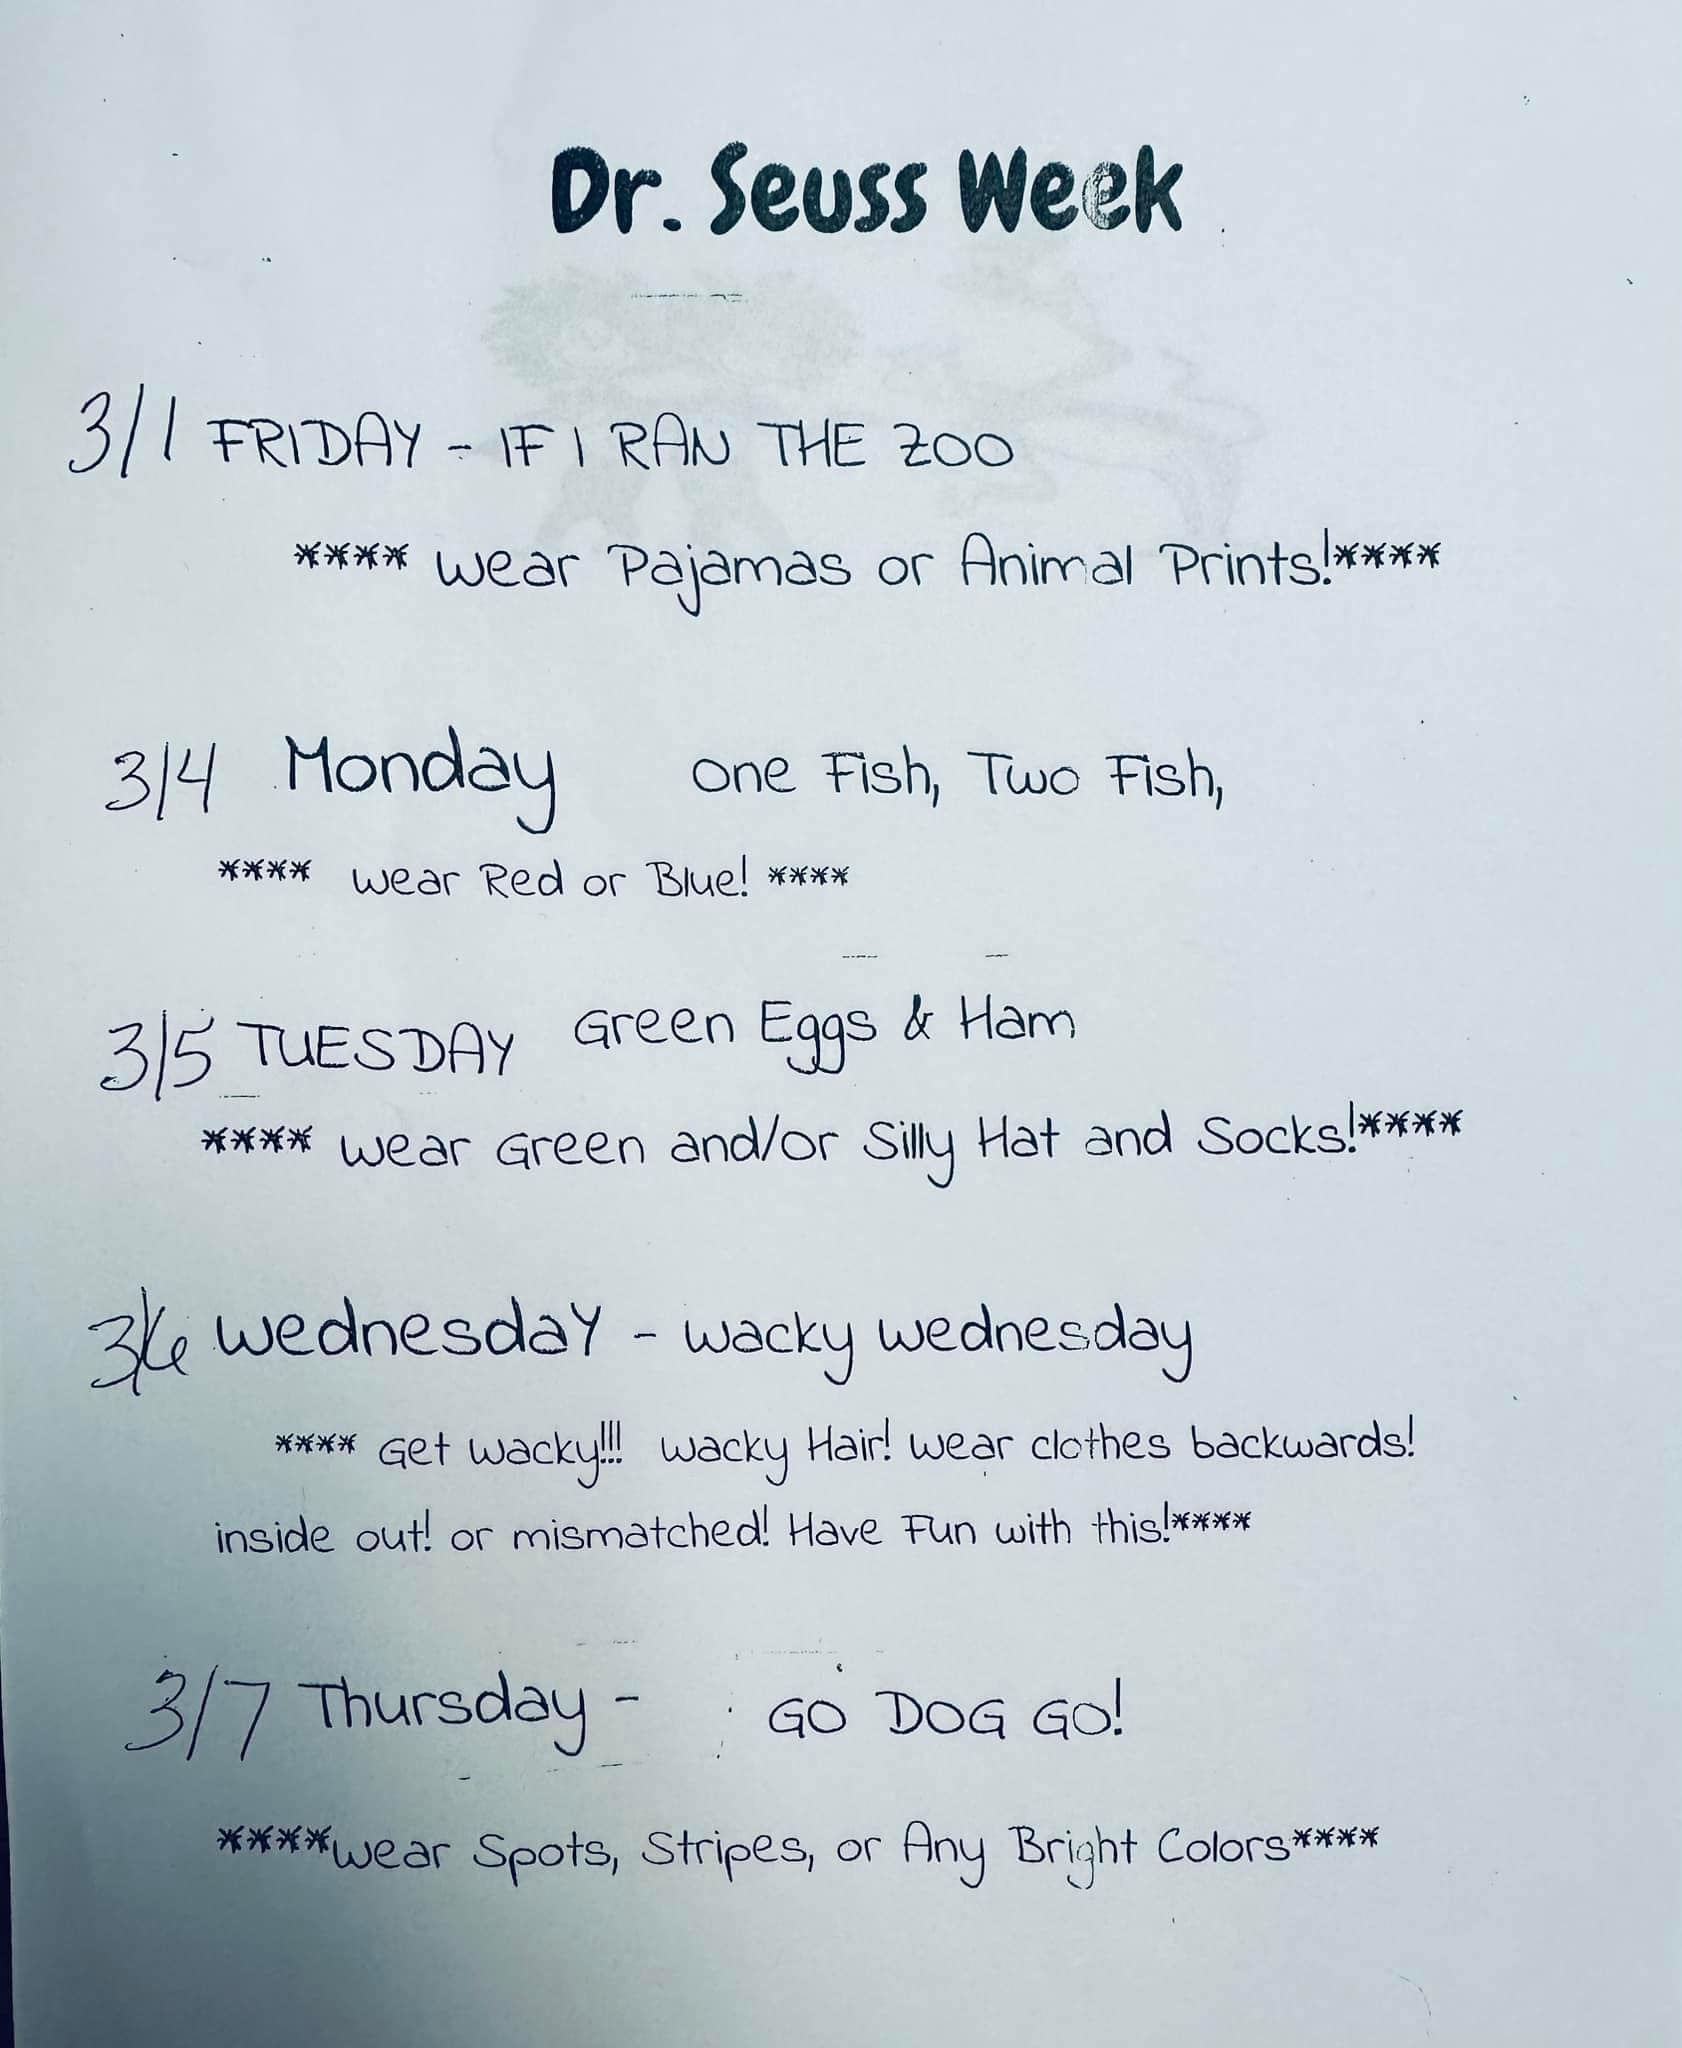 Dr. Seuss Week
3/1 FRIDAY - IF I RAN THE ZOO
**** Wear Pajamas or Animal Prints!****
3/4 Monday One Fish, Two Fish,
**** Wear Red or Blue! ****
3/5 TUESDAY Green Eggs & Ham
**** Wear Green and/or Silly Hat and Socks!****
3/6 Wednesday - Wacky Wednesday
**** Get Wacky!!! Wacky Hair! Wear clothes backwards!
inside out! or mismatched! Have Fun with this!****
3/7 Thursday - GO DOG GO!
****Wear Spots, Stripes, or Any Bright Colors****